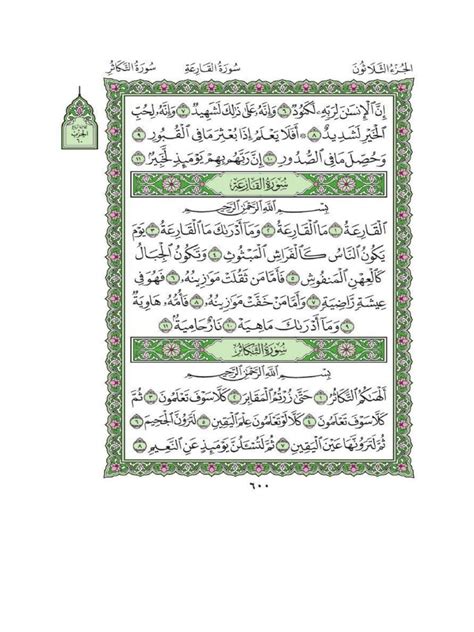 الجزء الثلاثون سورة القارعة سورة التكاثر
إِنَّ ٱلْإِنسَٰنَ لِرَبِّهِۦ لَكَنُودٌ ٦ وَإِنَّهُۥ عَلَىٰ ذَٰلِكَ لَشَهِيدٌ ٧ وَإِنَّهُۥ لِحُبِّ
ٱلْخَيْرِ لَشَدِيدٌ ٨ ۞ أَفَلَا يَعْلَمُ إِذَا بُعْثِرَ مَا فِى ٱلْقُبُورِ ٩
وَحُصِّلَ مَا فِى ٱلصُّدُورِ ١٠ إِنَّ رَبَّهُم بِهِمْ يَوْمَئِذٍ لَّخَبِيرٌۢ ١١
الحزب
٦٠
سورة القارعة
بِسْمِ ٱللَّهِ ٱلرَّحْمَٰنِ ٱلرَّحِيمِ
ٱلْقَارِعَةُ ١ مَا ٱلْقَارِعَةُ ٢ وَمَآ أَدْرَىٰكَ مَا ٱلْقَارِعَةُ ٣ يَوْمَ
يَكُونُ ٱلنَّاسُ كَٱلْفَرَاشِ ٱلْمَبْثُوثِ ٤ وَتَكُونُ ٱلْجِبَالُ
كَٱلْعِهْنِ ٱلْمَنفُوشِ ٥ فَأَمَّا مَن ثَقُلَتْ مَوَٰزِينُهُۥ ٦ فَهُوَ فِى
عِيشَةٍ رَّاضِيَةٍ ٧ وَأَمَّا مَنْ خَفَّتْ مَوَٰزِينُهُۥ ٨ فَأُمُّهُۥ هَاوِيَةٌ
٩ وَمَآ أَدْرَىٰكَ مَا هِيَهْ ١٠ نَارٌ حَامِيَةٌۢ ١١
سورة التكاثر
بِسْمِ ٱللَّهِ ٱلرَّحْمَٰنِ ٱلرَّحِيمِ
أَلْهَىٰكُمُ ٱلتَّكَاثُرُ ١ حَتَّىٰ زُرْتُمُ ٱلْمَقَابِرَ ٢ كَلَّا سَوْفَ تَعْلَمُونَ ٣ ثُمَّ
كَلَّا سَوْفَ تَعْلَمُونَ ٤ كَلَّا لَوْ تَعْلَمُونَ عِلْمَ ٱلْيَقِينِ ٥ لَتَرَوُنَّ ٱلْجَحِيمَ ٦
ثُمَّ لَتَرَوُنَّهَا عَيْنَ ٱلْيَقِينِ ٧ ثُمَّ لَتُسْـَٔلُنَّ يَوْمَئِذٍ عَنِ ٱلنَّعِيمِ ٨
٦٠٠